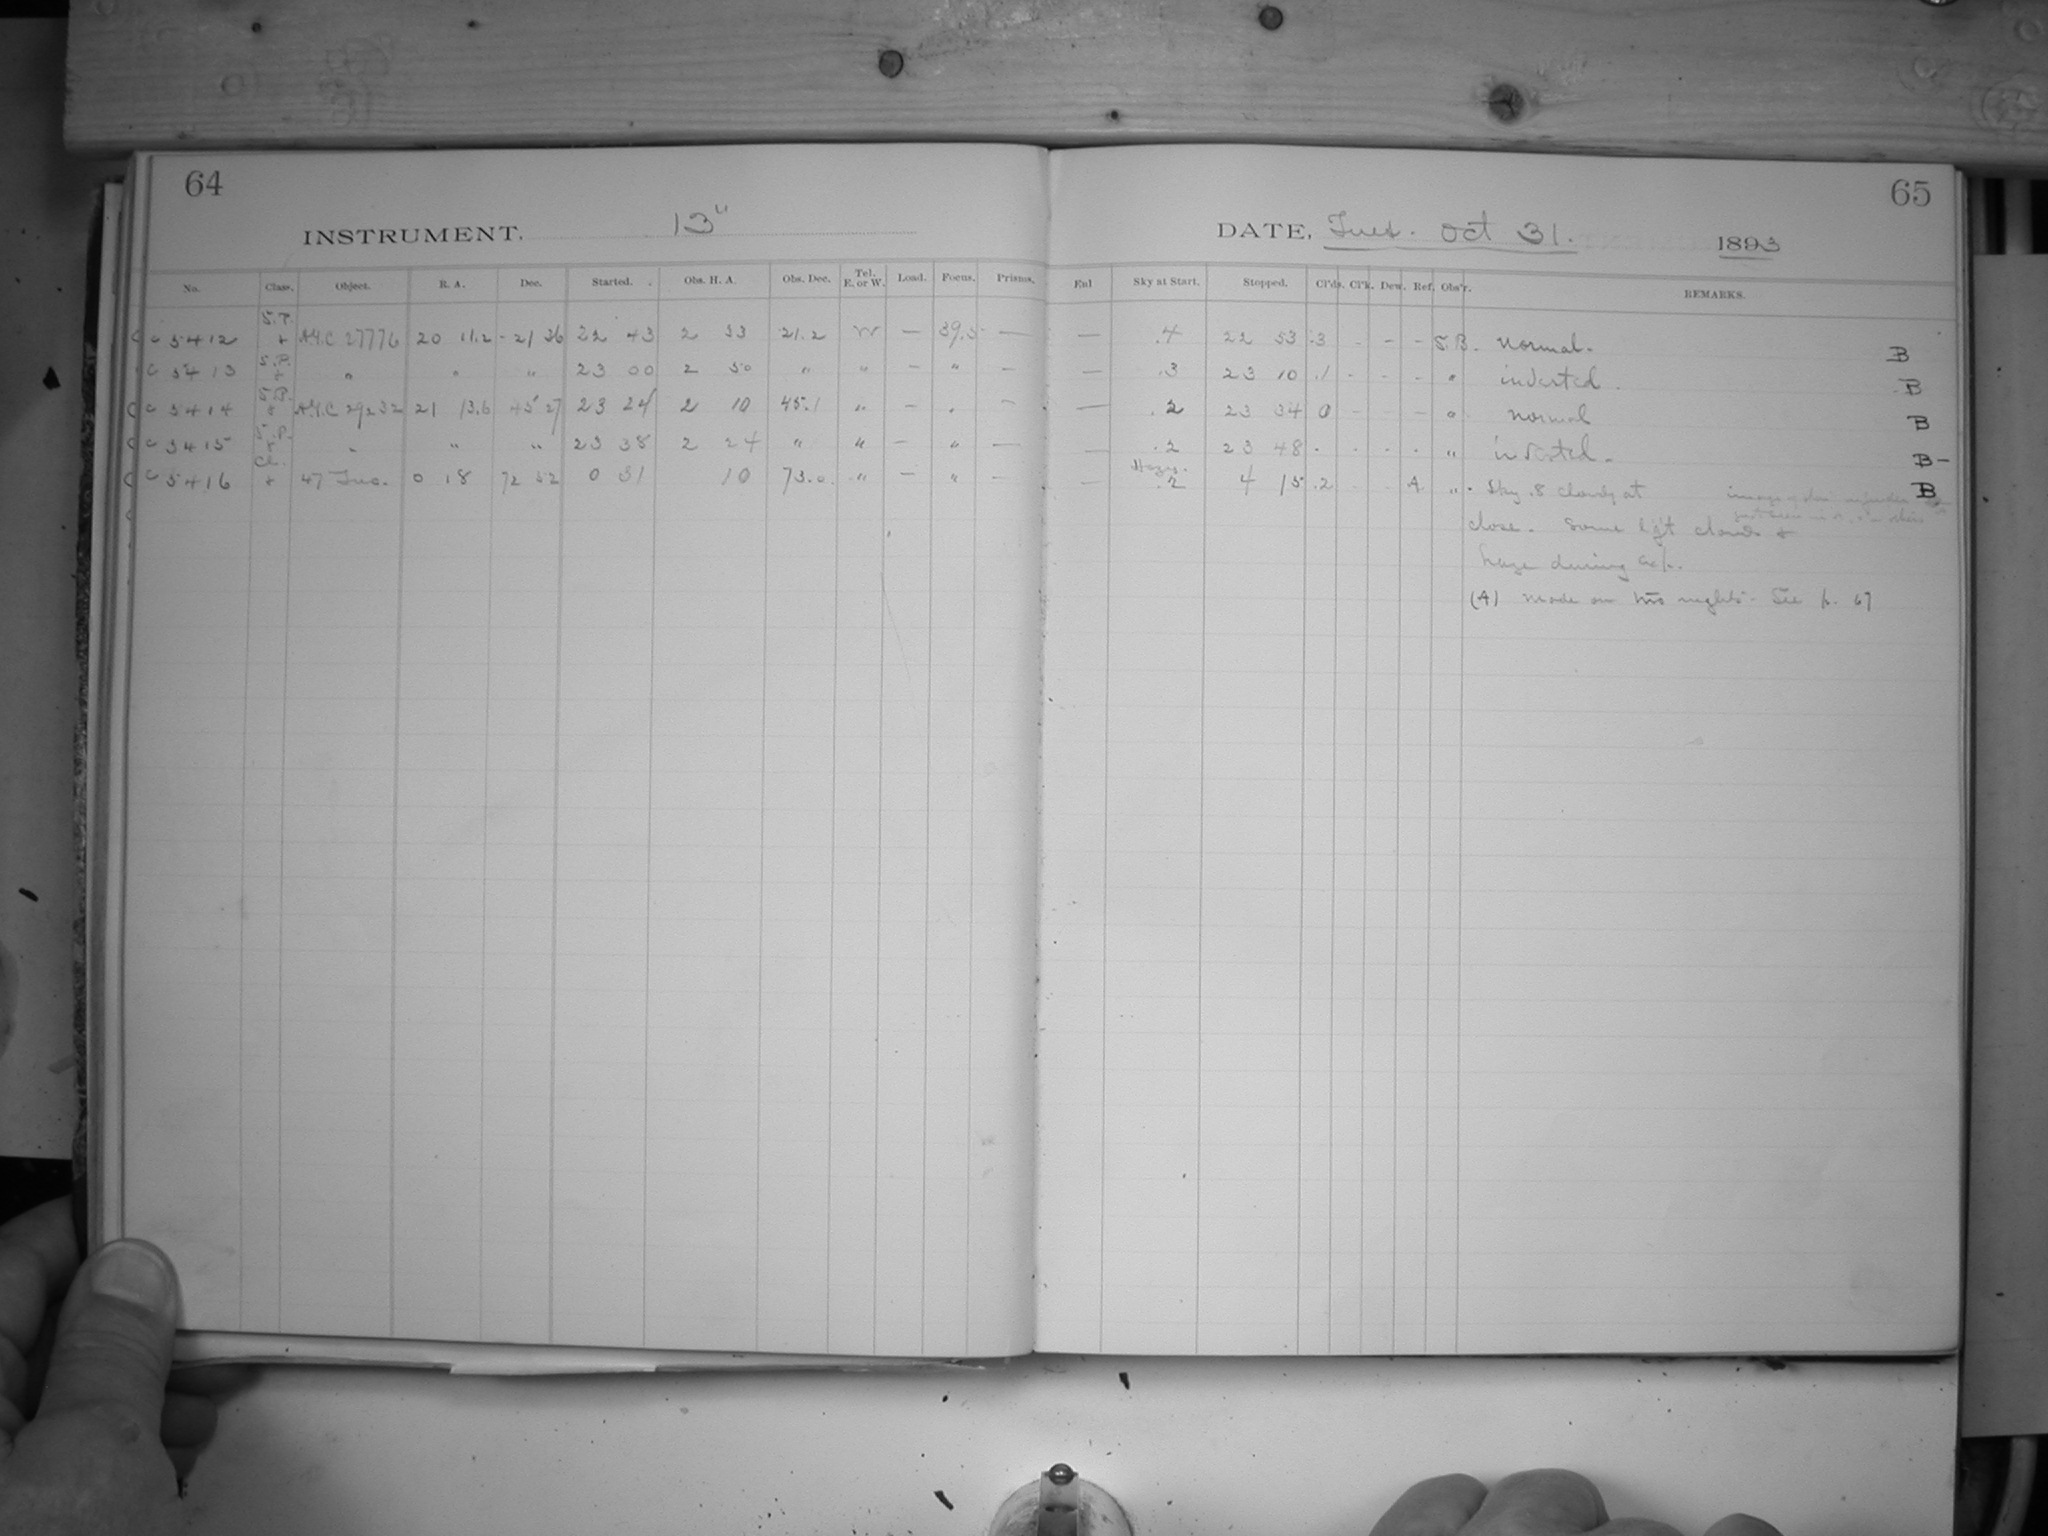 64
INSTRUMENT. 13"
No. Class. Object. R. A. Dec. Started. Obs. H. A. Obs. Dec. Tel. E. or W. Load. Focus. Prisms.
S.P.
C 5412 + A.G.C 27776 20 11.2 - 21 36 22 43 2 33 21.2 W — 39.5 —
S.P.
C 5413 + " " " 23 00 2 50 " " — " —
S.P.
C 5414 + A.G.C 29232 21 13.6 45 27 23 24 2 10 45.1 " — " —
S.P.
C 5415 + " " " 23 38 2 24 " " — " —
Cl.
C 5416 + 47 Tuc. 0 18 72 52 0 31 10 73.0 " — " —
65
DATE, Tues. Oct 31. 1893
Sky at Start. Stopped. Cl'ds. Cl'k. Dew. Ref. Obs'r. REMARKS.
— .4 22 53 .3 - - - S.B. normal. B
— .3 23 10 .1 - - - " inverted. B
— .2 23 34 0 - - - " normal B
— .2 23 48 . . . . " inverted. B-
Hazy.
— .2 4 15 .2 - - A " Sky .8 cloudy at B
image of star
close. Some light clouds &
haze during exp.
(A) made on two nights. See p. 67